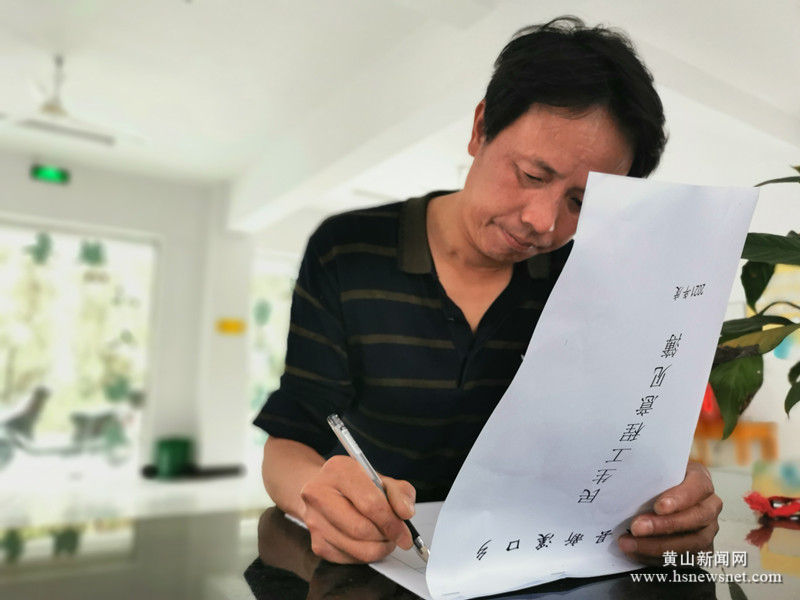 县新溪口乡
民生工程意见簿
2021年度
黄山新闻网
www.hsnewsnet.com